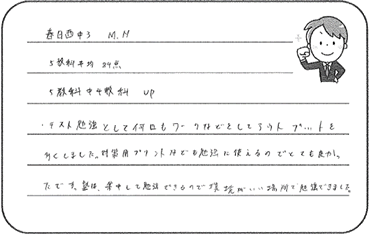 春日西中3 M.H
5教科平均 24点
5教科中4教科 UP
・テスト勉強として何回もワークなどをしてアウトプットを
多くしました。対策用プリントなども勉強に使えるのでとても良かっ
たです。塾は、集中して勉強できるので環境がいい場所で勉強できました。